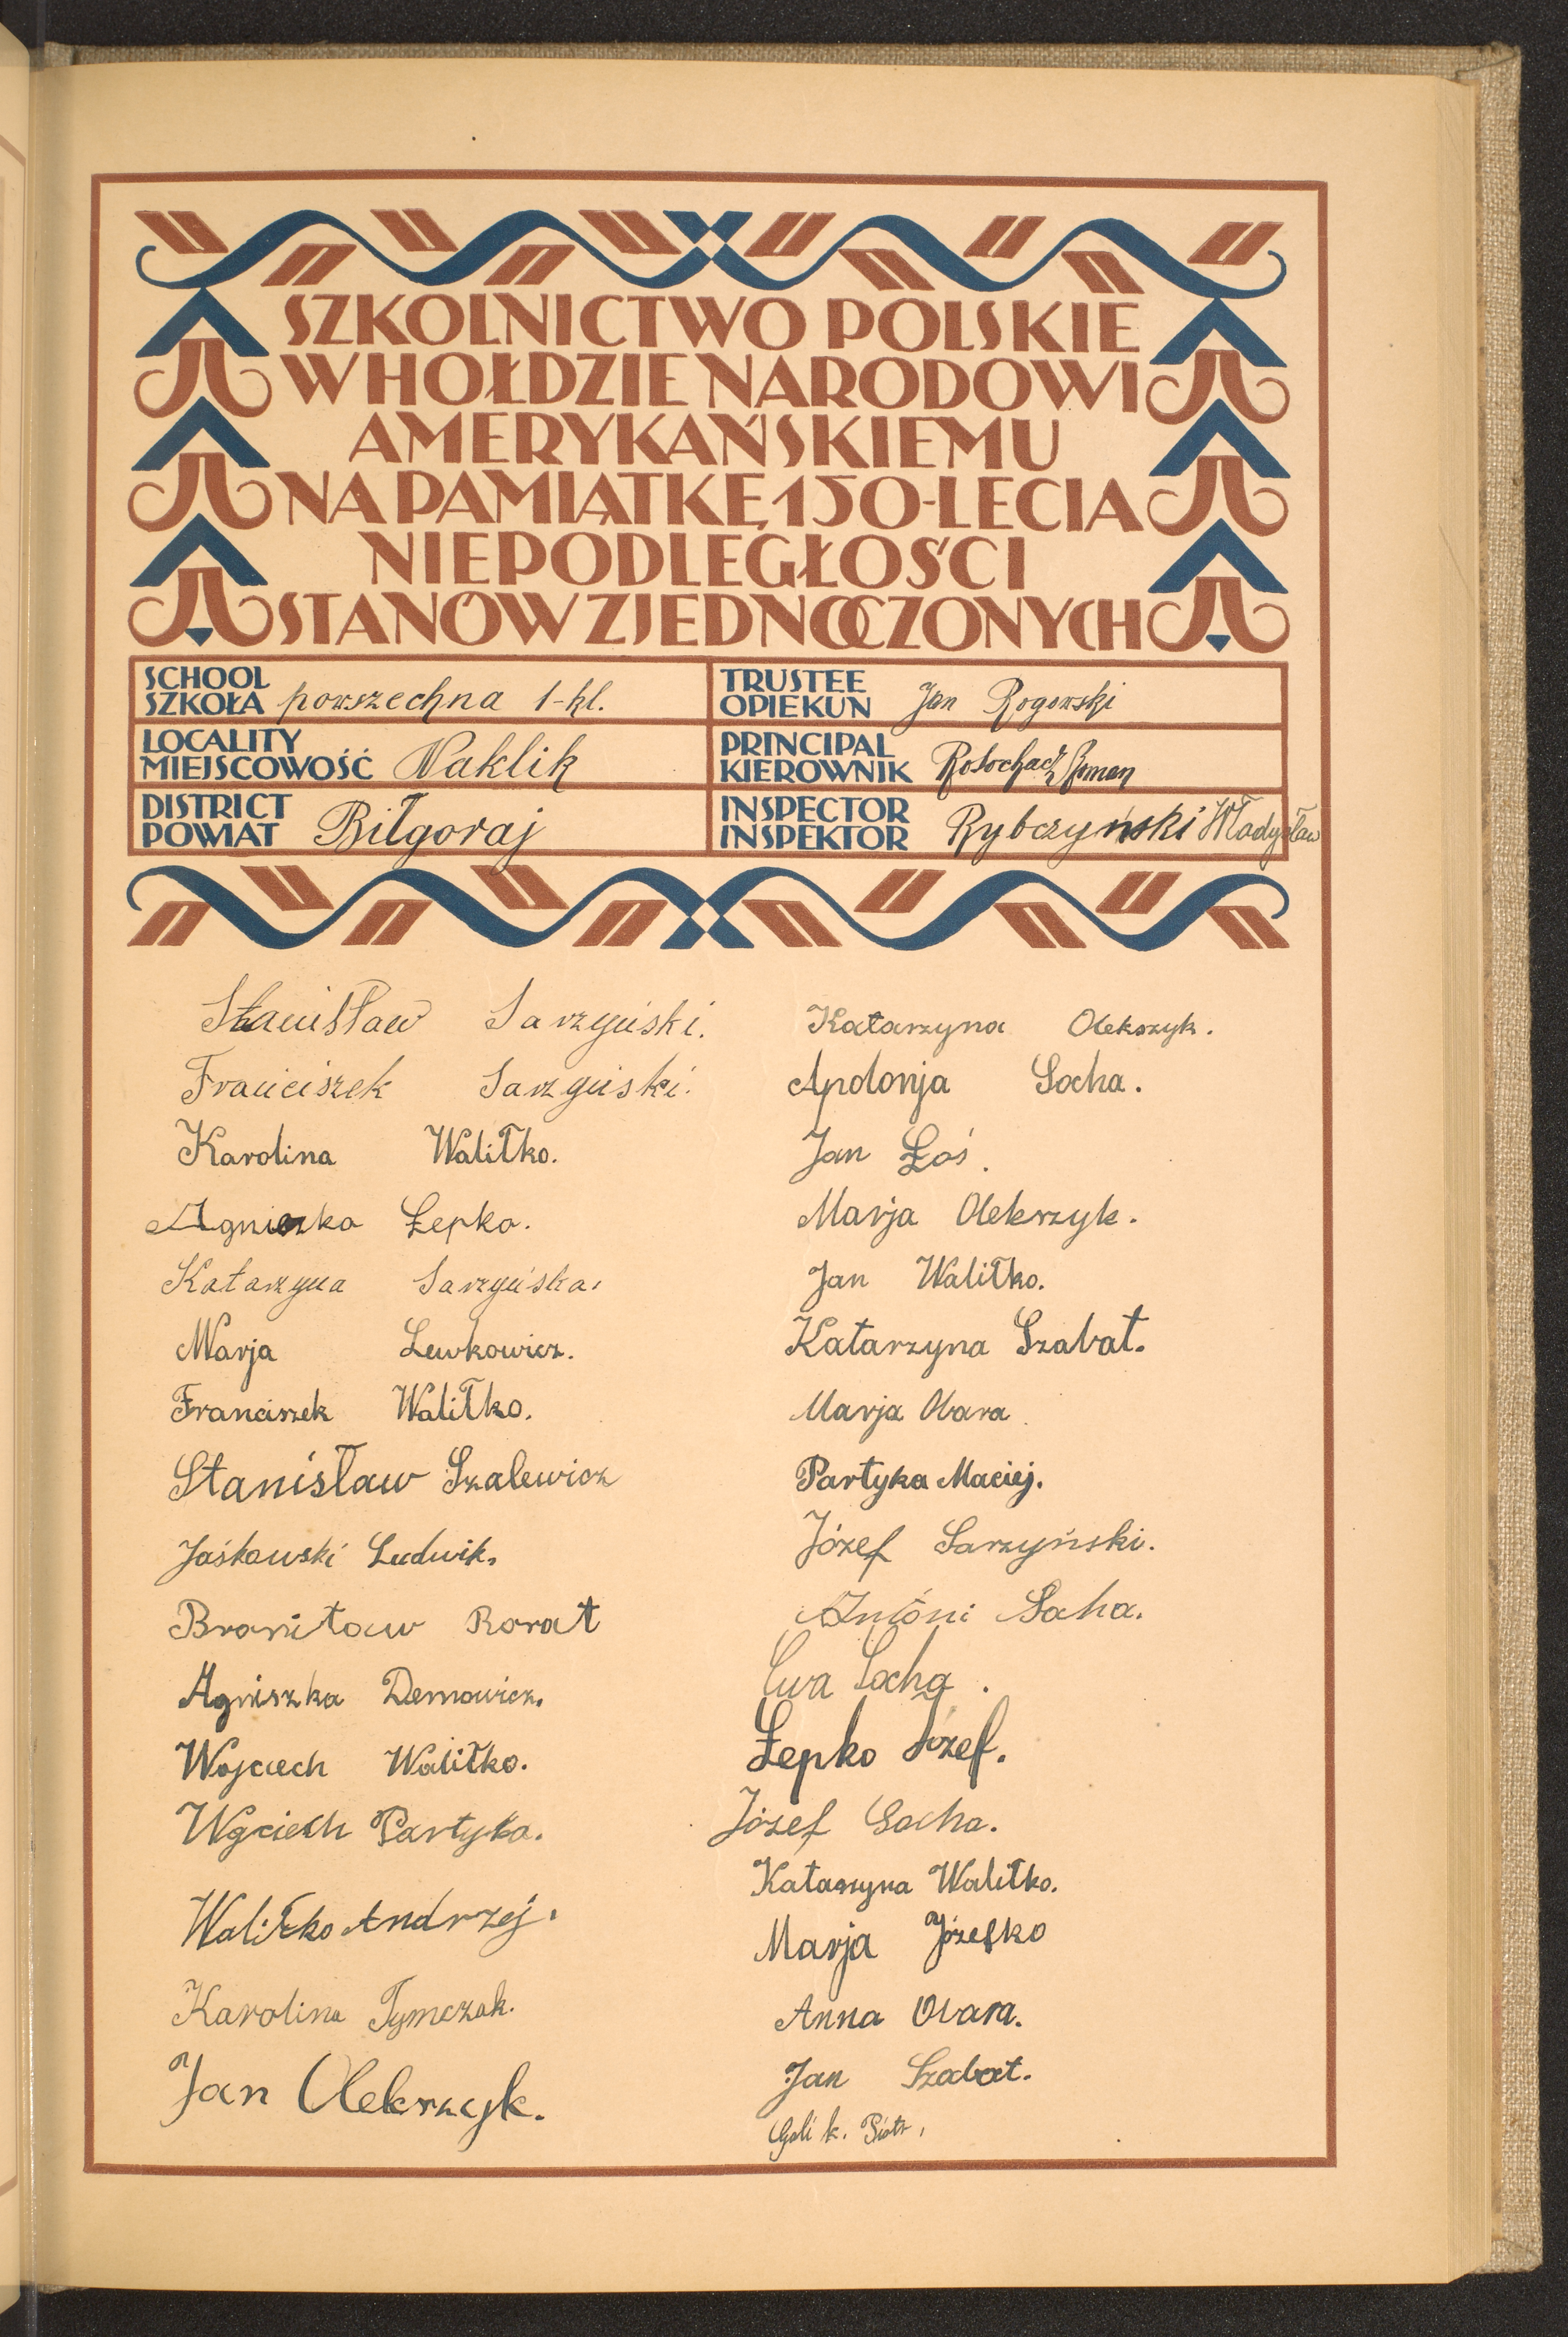 SZKOLNICTWO POLSKIE
W HOŁDZIE NARODOWI
AMERYKAŃSKIEMU
NA PAMIĄTKĘ 150-LECIA
NIEPODLEGŁOŚCI
STANÓW ZJEDNOCZONYCH
SCHOOL
SZKOŁA powszechna 1-kl.
TRUSTEE
OPIEKUN Jan Rogowski
LOCALITY
MIEJSCOWOŚĆ Naklik
PRINCIPAL
KIEROWNIK Roman
DISTRICT
POWIAT Biłgoraj
INSPECTOR
INSPEKTOR Rybczyński Władysław
Stanisław Sarzyński.
Franciszek Sarzyński.
Karolina Waliłko.
Agnieszka Łepko.
Katarzyna Sarzyńska.
Marja Lewkowicz.
Franciszek Waliłko.
Stanisław Szalewicz
Jaśkowski Ludwik.
Bronitaw Rorat
Agniszka Demowicz.
Wojciech Waliłko.
Wgciech Partyka.
Waliłko Andrzej.
Karolina Tymczak.
Jan Olekszyk.
Katarzyna Olekszyk.
Apolonja Socha.
Jan Łoś.
Marja Olekszyk.
Jan Waliłko.
Katarzyna Szabat.
Marja Obara.
Partyka Maciej.
Józef Sarzyński.
Antoni Socha.
Ewa Socha.
Łepko Józef.
Józef Socha.
Katarzyna Waliłko.
Marja Józefko
Anna Obara.
Jan Szabat.
Piotr.